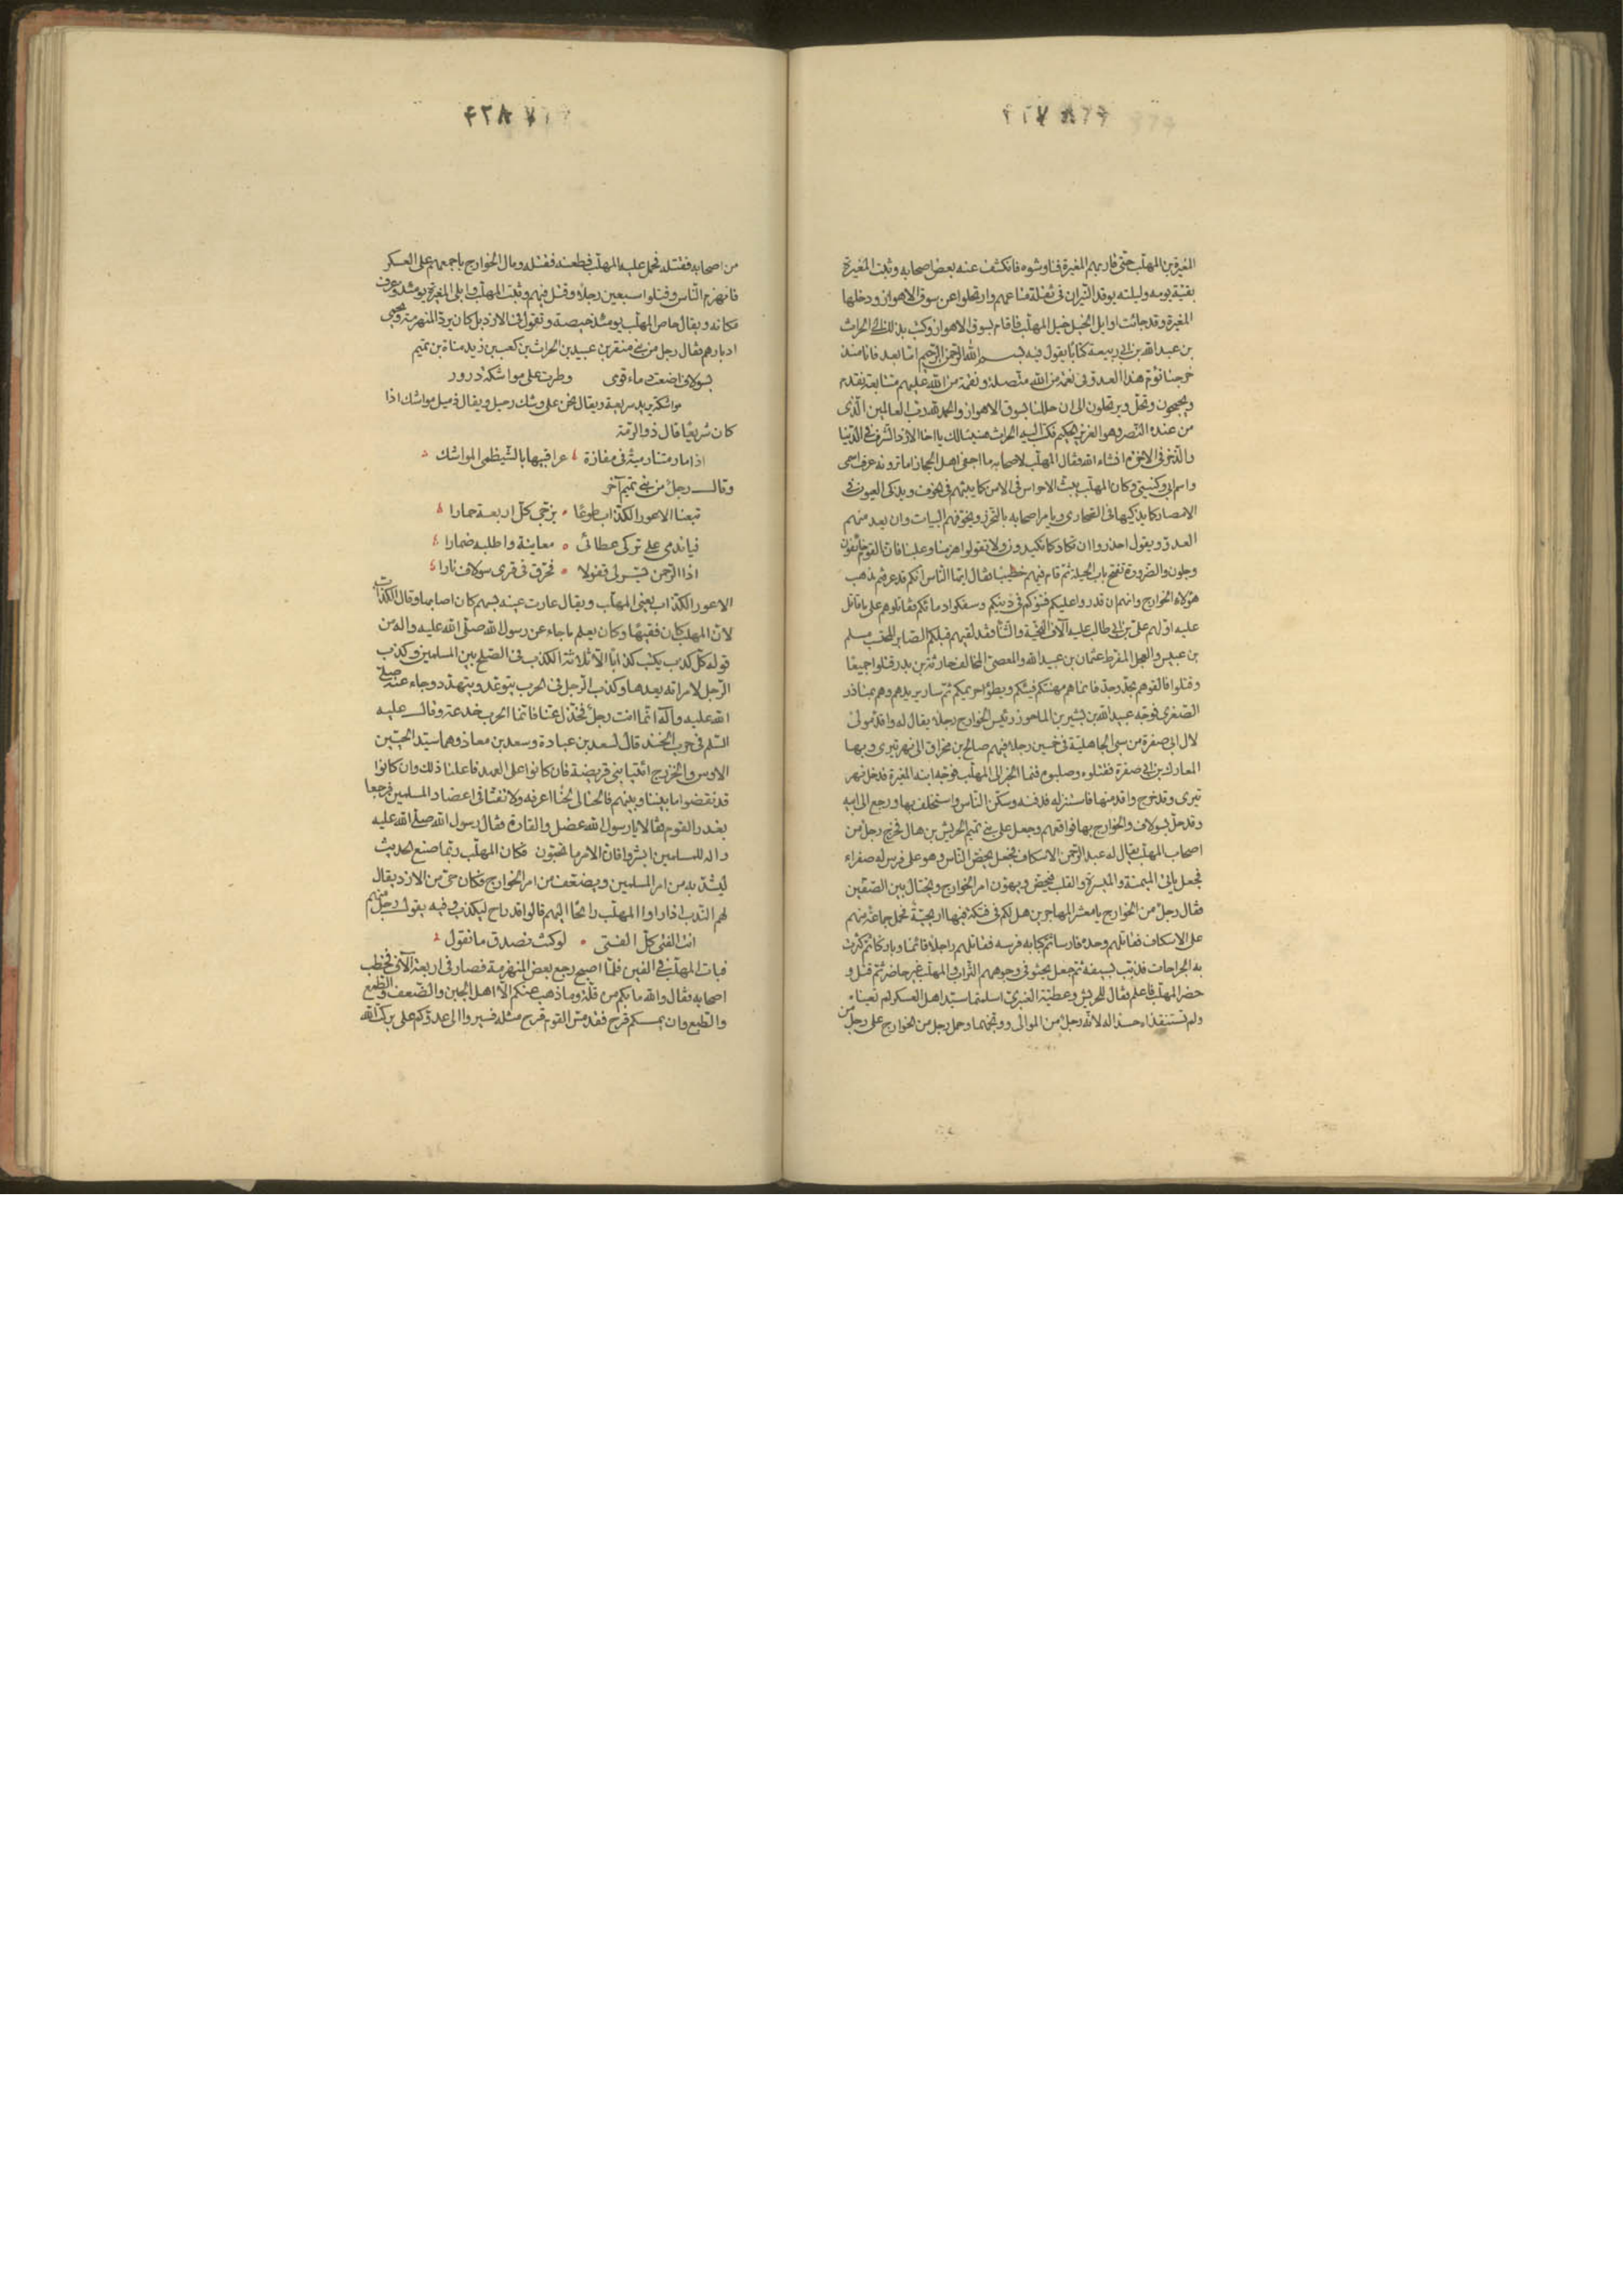 المغيرة بن المهلب حتى قاربهم المغيرة فناوشوه فانكشف عنه بعض اصحابه وثبت المغيرة
بقية يومه وليلته يوقد النيران في متاعهم وارتحلوا عن سوق الاهواز ودخلها
المغيرة وقد جائت اوايل الخيل خيل المهلب فاقام بسوق الاهواز وكتب بذلك الى الحراث
بن عبد الله بن ابي ربيعة كتابا يقول فيه بسم الله الرحمن الرحيم اما بعد فانا منذ
خرجنا نؤم هذا العدو في نعمة من الله متصلة ونقمة من الله عليهم متتابعة نقدم
ويحجمون ونحل ويرتحلون الى ان حللنا بسوق الاهواز والحمد لله رب العالمين الذى
من عنده النصر وهو العزيز الحكيم فكتب اليه الحراث هنيئا لك يا اخا الازد الشرف في الدنيا
والذخر في الاخرة انشاء الله فقال المهلب لاصحابه ما اجفى اهل الحجاز اما ترونه عرف اسمى
واسم ابي وكنيتي وكان المهلب يبث الاحراس في الامن كما يبثهم في الخوف ويذكى العيون في
الامصار كما يذكيها في الصحارى ويأمر اصحابه بالتحرز ويخوفهم البيات وان بعد منهم
العدو ويقول احذروا ان تكادوا كما تكيدون ولا تقولوا هزمنا وغلبنا فان القوم خائفون
وجلون والضرورة تفتح باب الحيلة ثم قام فيهم خطيبا فقال ايها الناس انكم قد عرفتم مذهب
هؤلاء الخوارج وانهم ان قدروا عليكم فتنوكم في دينكم وسفكوا دمائكم فقاتلوهم على ما قاتل
عليه اولهم على بن ابي طالب عليه آلاف التحية والثنا فقد لقيهم قبلكم الصابر المحتسب مسلم
بن عبيس والعجل المفرط عثمان بن عبيد الله والمعصى المخالف حارثة بن بدر فقتلوا جميعا
وقتلوا فالقوهم بجد وحد فانما هم مهنتكم ثم سار يريدهم وهم بمناذر
الصغرى فوجه عبيد الله بن بشير بن الماحوز رئيس الخوارج رجلا يقال له واقد مولى
لال ابي صفرة من سبى الجاهلية في خمسين رجلا فيهم صالح بن مخراق الى نهر تيرى وبها
المعارك بن ابي صفرة فقتلوه وصلبوه فنما الخبر الى المهلب فوجه ابنه المغيرة فدخل نهر
تيرى وقد خرج واقد منها فاستنزله فدفنه وسكن الناس واستخلف بها ورجع الى ابيه
وقد حل بسولاف والخوارج بها فواقعهم وجعل على بني تميم الحريش بن هلال فخرج رجل من
اصحاب المهلب يقال له عبد الرحمن الاسكاف فجعل يحض الناس وهو على فرس له صفراء
فجعل ياتى الميمنة والميسرة والقلب فيحض ويهون امر الخوارج ويختال بين الصفين
فقال رجل من الخوارج يا معشر المهاجرين هل لكم في فتكة فيها اريحية فحمل جماعة منهم
على الاسكاف فقاتلهم وحده فارسا ثم كبا به فرسه فقاتلهم راجلا قائما وباركا ثم كثرت
به الجراحات فذبب بسيفه ثم جعل يحثو في وجوههم التراب والمهلب غير حاضر ثم قتل و
حضر المهلب فاعلم فقال للحريش وعطية العنبرى اسلمتما سيد اهل العسكر لم تعيناه
ولم تستنقذاه حسدا له لانه رجل من الموالى ووبخهما وحمل رجل من الخوارج على رجل من
من اصحابه فقتله فحمل عليه المهلب فطعنه فقتله ومال الخوارج باجمعهم على العسكر
فانهزم الناس وقتلوا سبعين رجلا وقتل فيهم وثبت المهلب وابلى المغيرة يومئذ وعرف
مكانه ويقال حاص المهلب يومئذ حيصة وتقول الازد بل كان يرد المنهزمة ويحمى
ادبارهم فقال رجل من بني منقر بن عبيد بن الحراث بن كعب بن زيد مناة بن تميم
بسولاف اضعت دماء قومى وطرت على مواشكة درور
مواشكة يريد سريعة ويقال نحن على وشك رحيل ويقال ذميل مواشك اذا
كان سريعا قال ذو الرمة
اذا ما رمتنا رمية في مفازة عراقيبها بالشيظمى المواشك
وقال رجل من بني تميم آخر
تبعنا الاعور الكذاب طوعا يزجى كل اربعة حمارا
فيا ندمى على تركى عطائى معاينة واطلبه ضمارا
اذا الرحمن يسر لى قفولا فحرق في قرى سولاف نارا
الاعور الكذاب يعنى المهلب ويقال عارت عينه بسهم كان اصابها وقال الكذاب
لان المهلب كان فقيها وكان يعلم ما جاء عن رسول الله صلى الله عليه واله من
قوله كل كذب يكتب كذبا الا ثلاثة الكذب في الصلح بين المسلمين وكذب
الرجل لامراته يعدها وكذب الرجل في الحرب يتوعد ويتهدد وجاء عنه صلى
الله عليه وآله انما انت رجل فخذل عنا فانما الحرب خدعة وقال عليه
السلم في حرب الخندق لسعد بن عبادة وسعد بن معاذ وهما سيد الحيين
الاوس والخزرج ائتيا بنى قريضة فان كانوا على العهد فاعلنا ذلك وان كانوا
قد نقضوا ما بيننا وبينهم فالحنا لى لحنا اعرفه ولا تفتا في اعضاد المسلمين فرجعا
بغدر القوم فقالا يا رسول الله عضل والقارة فقال رسول الله صلى الله عليه
واله للمسلمين ابشروا فان الامر ما تحبون فكان المهلب ربما صنع الحديث
ليشد به من امر المسلمين ويضعف من امر الخوارج فكان حى من الازد يقال
لهم الندب اذا راوا المهلب رائحا اليهم قالوا قد راح ليكذب وفيه يقول رجل منهم
انت الفتى كل الفتى لو كنت تصدق ما تقول
فبات المهلب في الفين فلما اصبح رجع بعض المنهزمة فصار في اربعة آلاف فخطب
اصحابه فقال والله ما بكم من قلة وما ذهب عنكم الا اهل الجبن والضعف والطمع
والطبع وان يمسسكم قرح فقد مس القوم قرح مثله فسيروا الى عدوكم على بركة الله